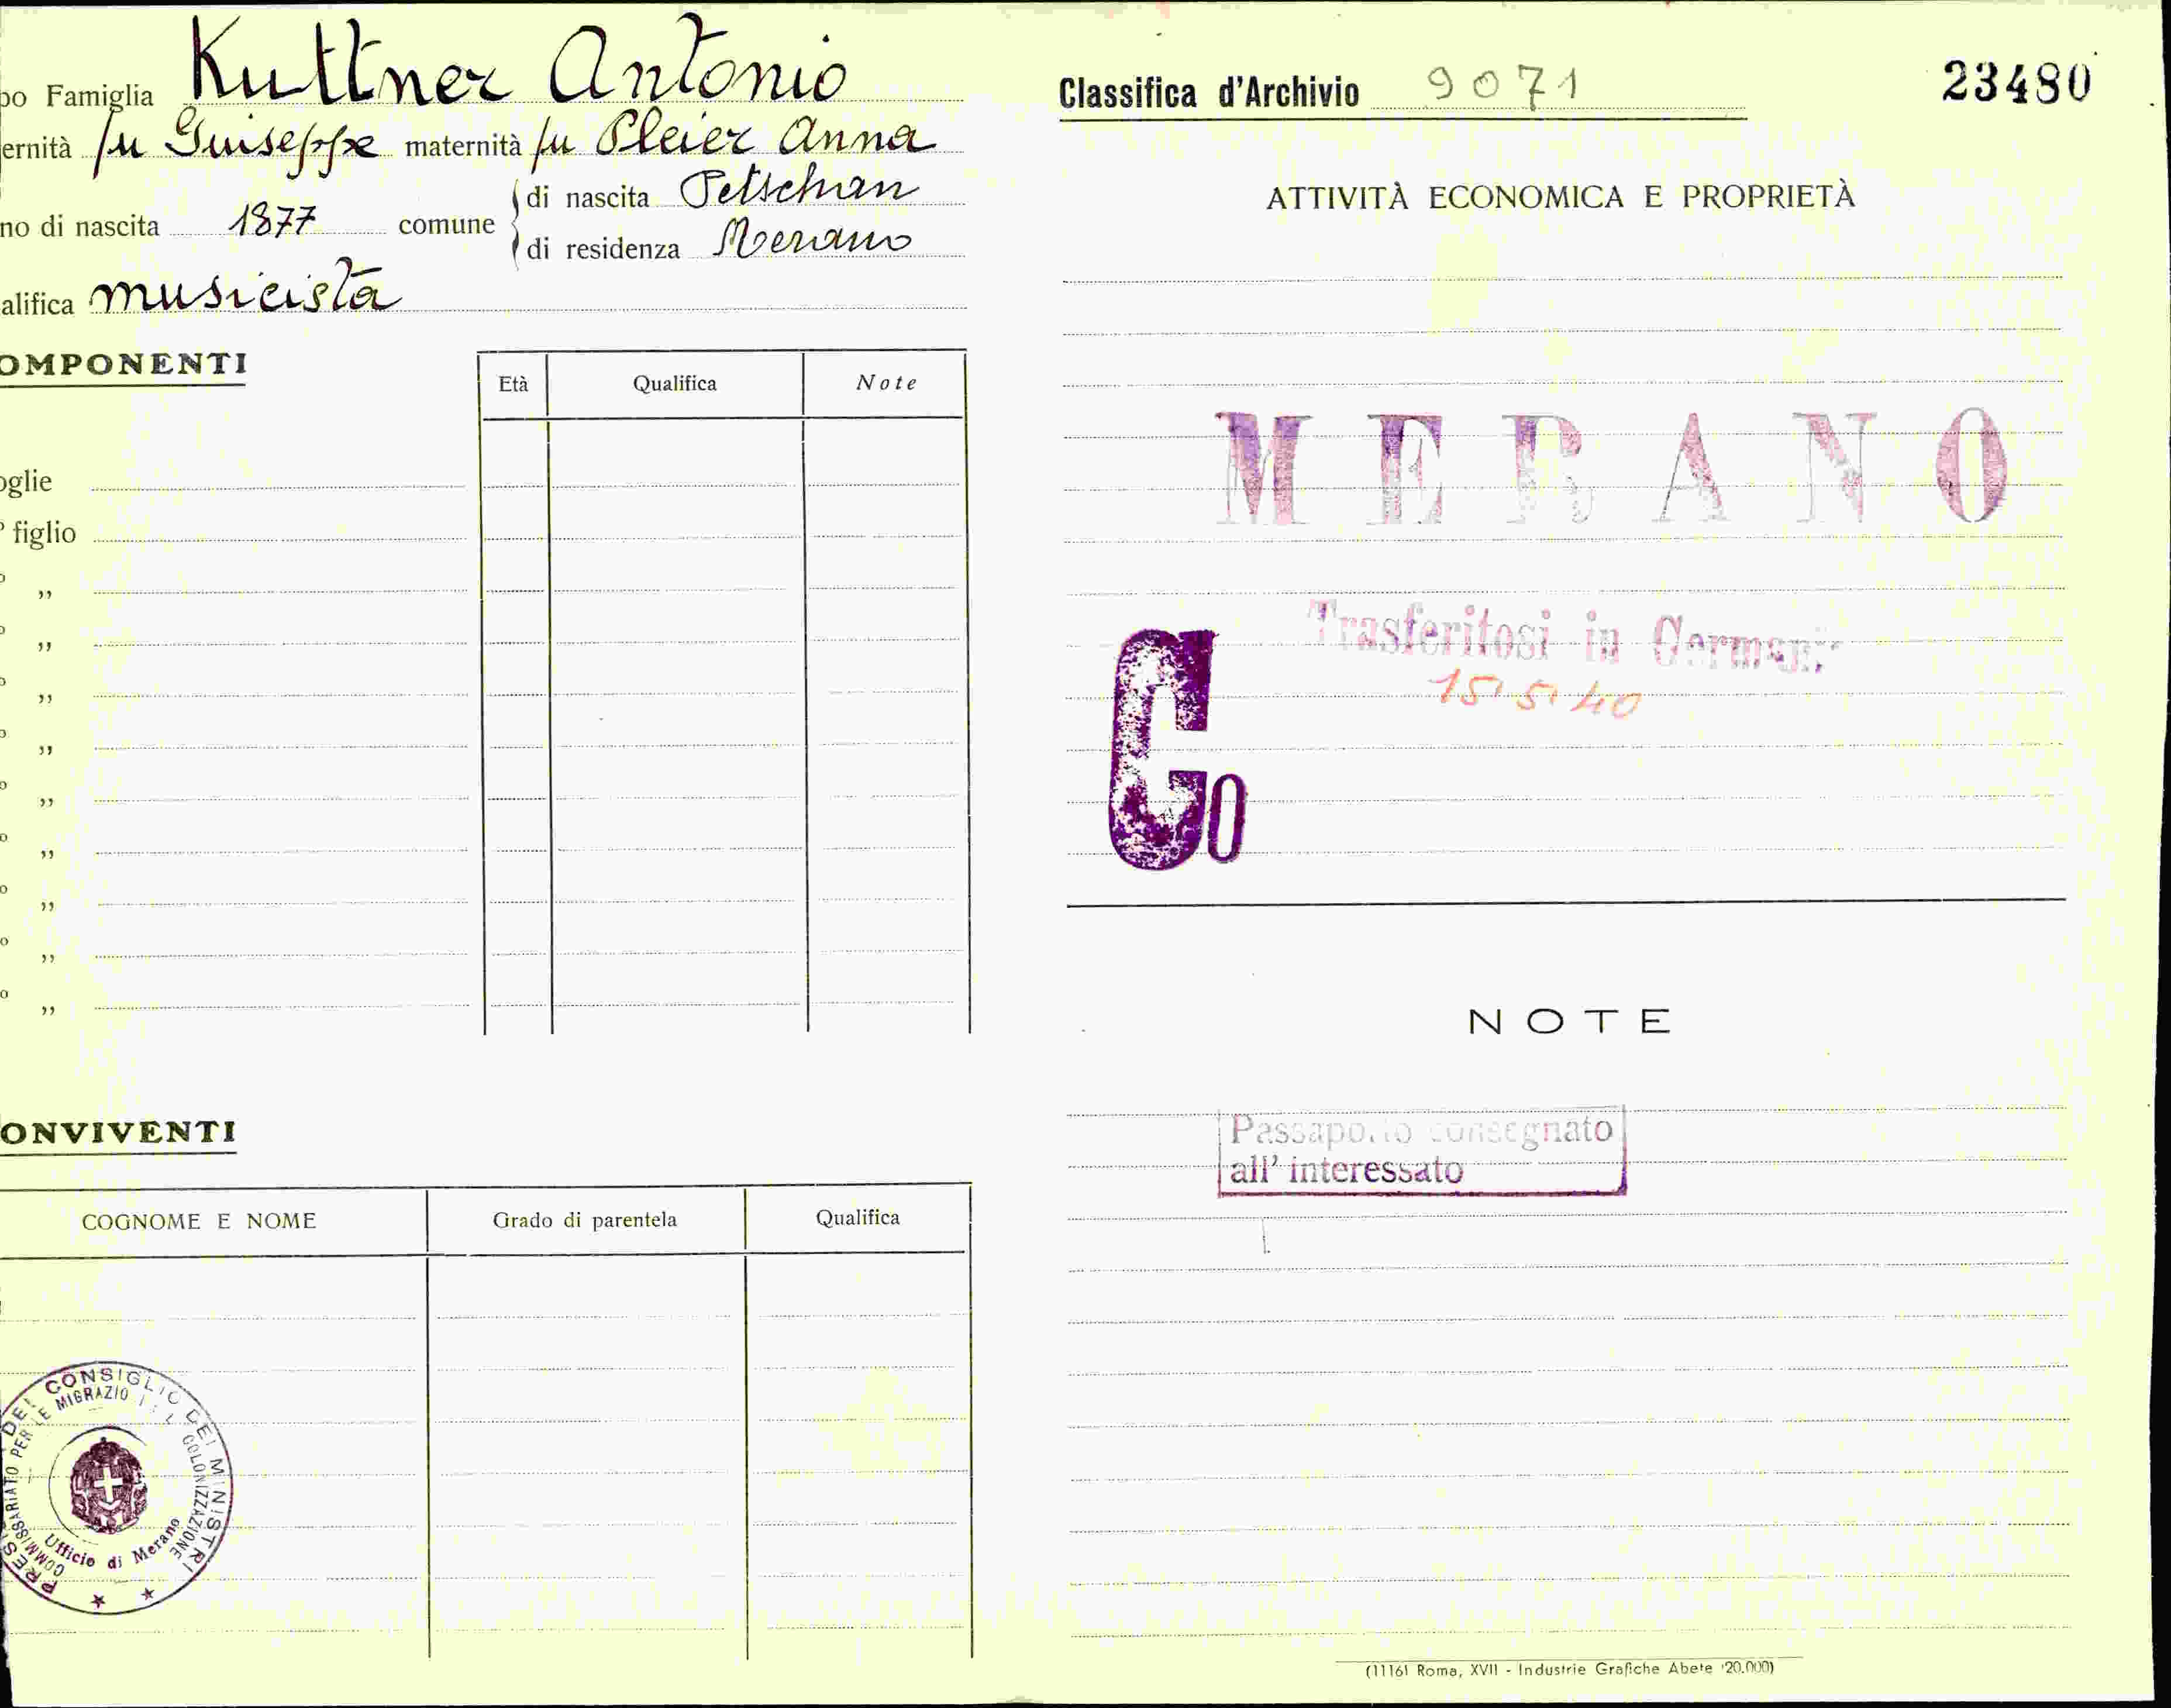 po Famiglia Kuttner Antonio
ernità fu Guiseppe maternità fu Pleier Anna
no di nascita 1877 comune
di nascita Petschan
di residenza Merano
alifica musicista
OMPONENTI
Età Qualifica Note
oglie
° figlio
o ,,
o ,,
o ,,
o ,,
o ,,
o ,,
o ,,
o ,,
o ,,
ONVIVENTI
COGNOME E NOME Grado di parentela Qualifica
DEL CONSIGLIO DEI MINISTRI
COMMISSARIATO PER LE MIGRAZIO COLONIZZAZIONE
Ufficio di Merano
Classifica d'Archivio 9071
23480
ATTIVITÀ ECONOMICA E PROPRIETÀ
MERANO
Trasferitosi in Germani
15 5 40
Co
NOTE
Passaporto consegnato
all' interessato
(11161 Roma, XVII - Industrie Grafiche Abete '20.000)